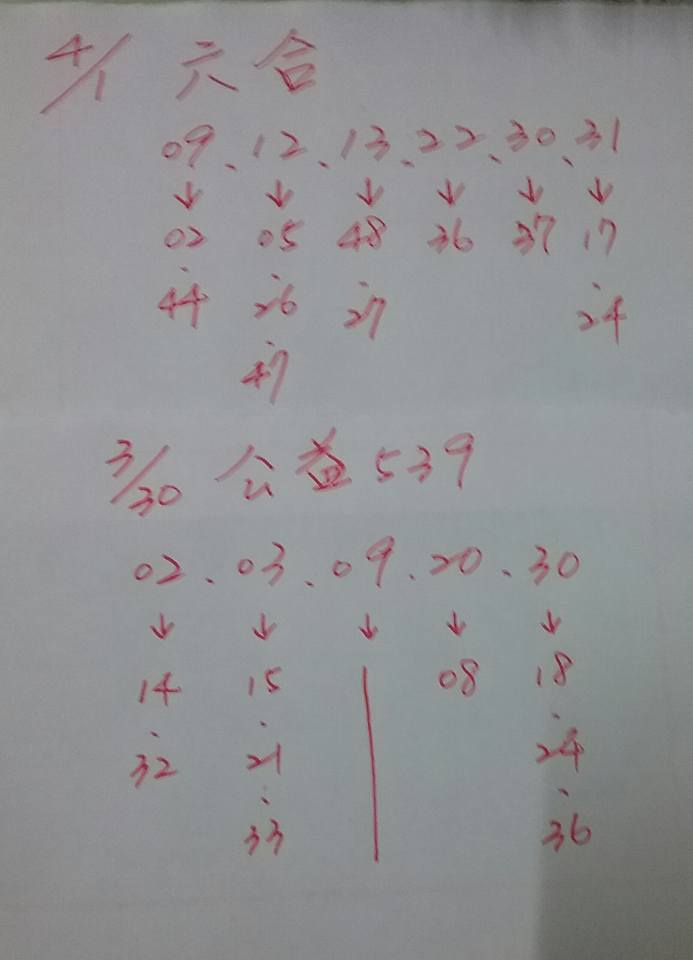 4/1 六合
09、12、13、22、30、31
↓ ↓ ↓ ↓ ↓ ↓
02 05 48 36 37 17
44 26 27 24
47
3/30 公益539
02、03、09、20、30
↓ ↓ ↓ ↓ ↓
14 15 08 18
32 21 24
33 36